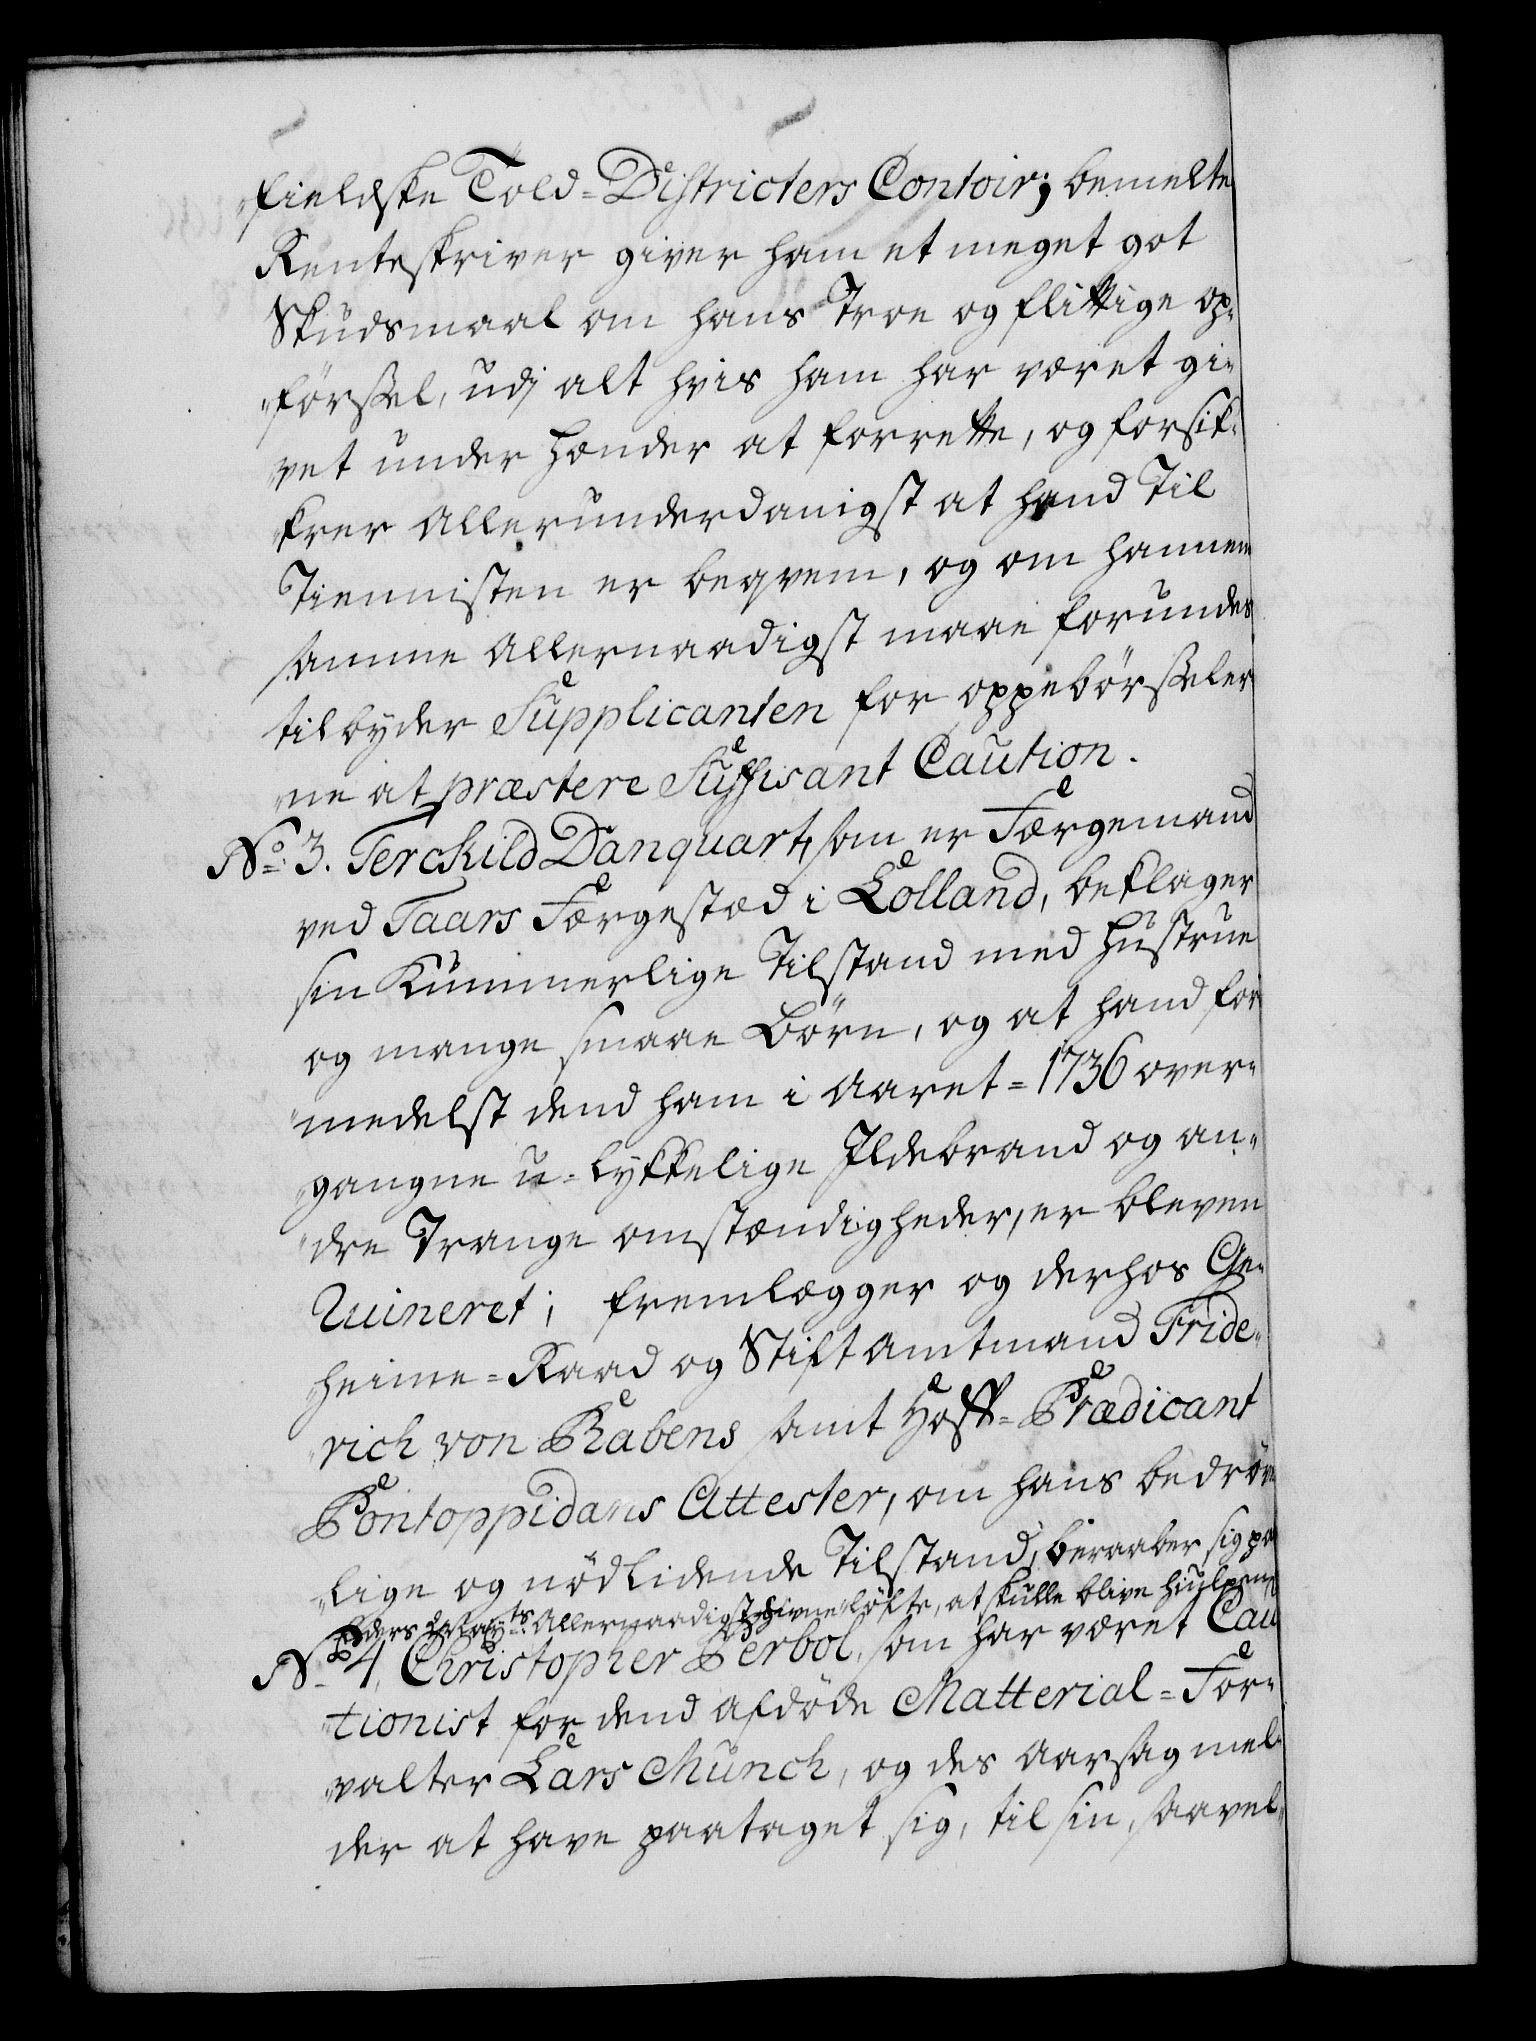 fieldske Told-Districters Contoir; bemelte
Renteskriver giver ham et meget got
Skudsmaal om hans Troe og flittige op-
førssel, udj alt hvis ham har været gi-
vet under Hænder at forrette, og forsik-
krer Allerunderdanigst at hand til
Tiennisten er beqvem, og om hannem
samme Allernaadigst maae forundes
tilbyder Supplicanten for oppebørsseler
ne at præstere Suffisant Caution.
No: 3. Terckild Danquart, som er Færgemand
ved Taars Færgestæd i Lolland, beklager
sin Kummerlige Tilstand med Hustrue
og mange smaae Börn, og at hand for
medelst dend ham i Aaret = 1736 over-
gangne u-lykkelige Ildebrand og an-
dre Trange omstændigheder, er bleven
Ruineret; fremlægger og derhos Ge-
heime-Raad og Stiftamtmand Fride-
rich von Rabens samt Hoff-Prædicant
Pontoppidans Attester, om hans bedröve
lige og nödlidende Tilstand, beraaber sig paa
Eders Mayts: Allernaadigst givne löfte, at skulle blive hiulpen
No 4. Christopher Perbol, som har været Cau
tionist for dend afdöde Matterial-For-
valter Lars Munch, og des Aarsag mel-
der at have paataget sig, til sin, saavel